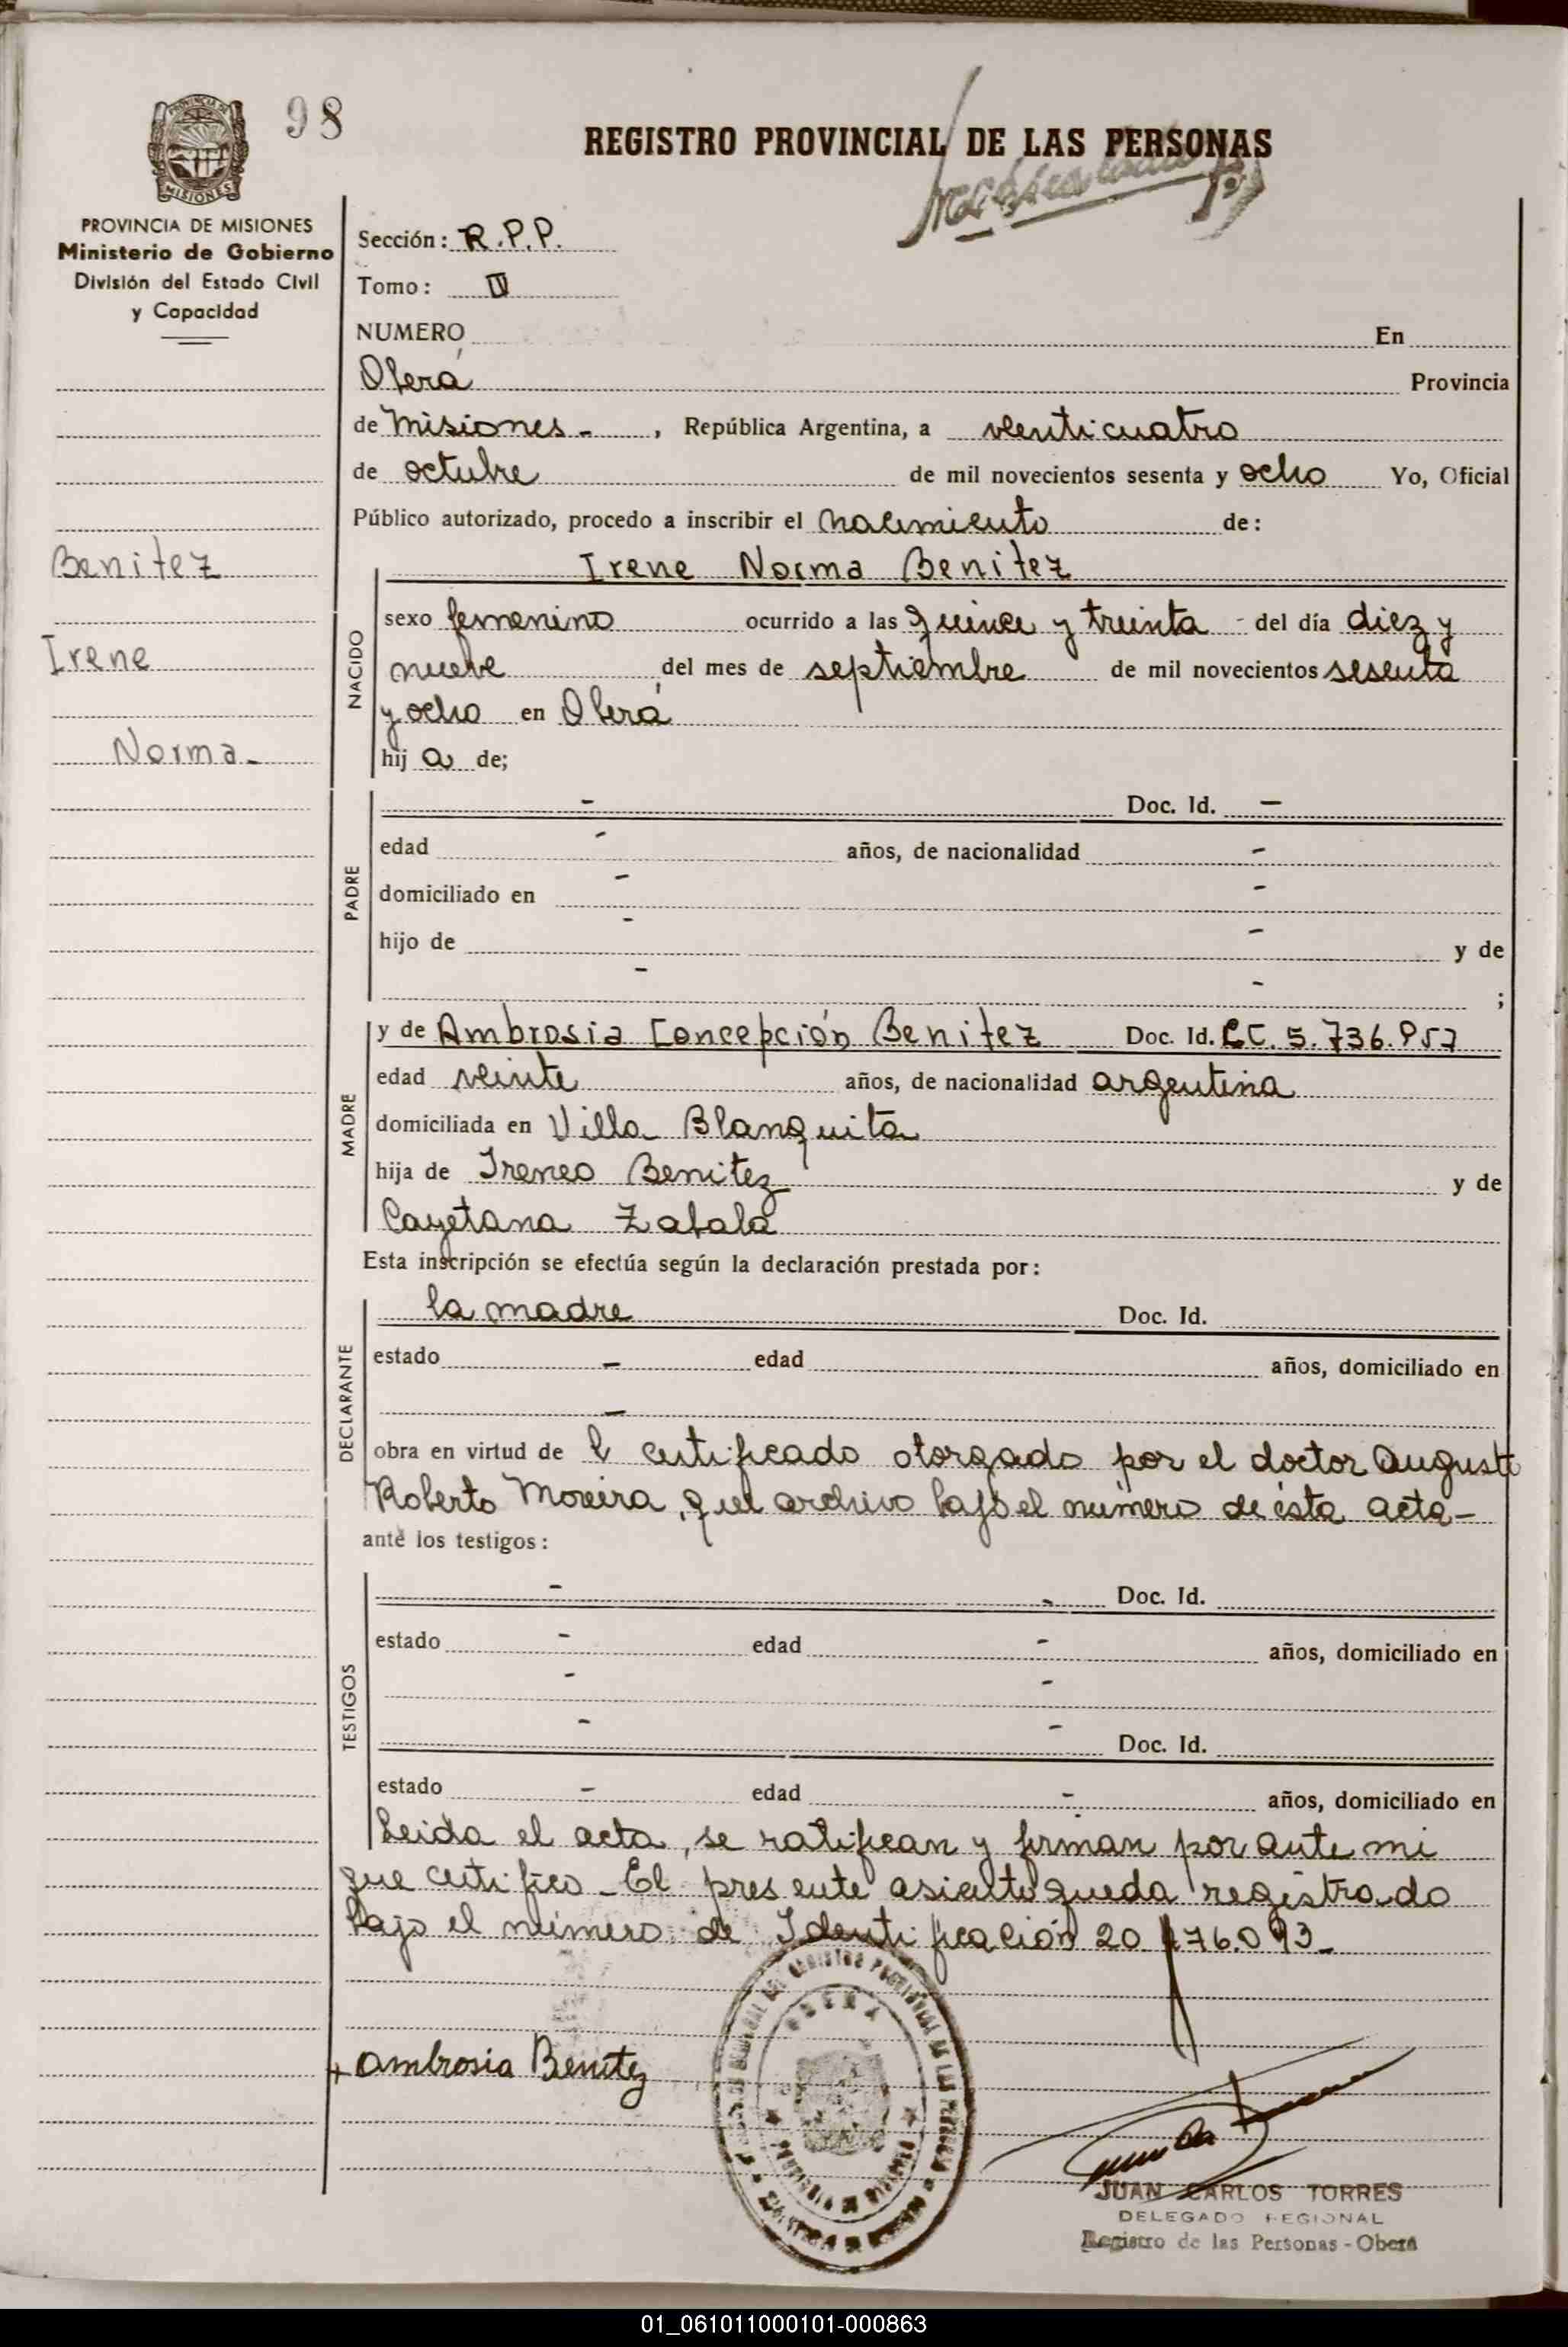 98
REGISTRO PROVINCIAL DE LAS PERSONAS
PROVINCIA DE
MISIONES
PROVINCIA DE MISIONES
Ministerio de Gobierno
División del Estado Civil
y Capacidad
Sección: R.P.P.
Tomo: IV
NUMERO En
Oberá Provincia
de Misiones - , República Argentina, a veinticuatro
de octubre de mil novecientos sesenta y ocho Yo, Oficial
Público autorizado, procedo a inscribir el nacimiento de:
Benitez
Irene
Norma-
Irene Norma Benitez
NACIDO
sexo femenino ocurrido a las quince y treinta - del día diez y
nueve del mes de septiembre de mil novecientos sesenta
y ocho en Oberá
hij a de;
PADRE
- Doc. Id. -
edad - años, de nacionalidad -
domiciliado en - -
hijo de - - y de
- - ;
MADRE
y de Ambrosia Concepción Benitez Doc. Id. LC. 5.736.957
edad veinte años, de nacionalidad argentina
domiciliada en Villa Blanquita
hija de Ireneo Benitez y de
Cayetana Zabala
Esta inscripción se efectúa según la declaración prestada por:
DECLARANTE
la madre Doc. Id.
estado - edad años, domiciliado en
-
obra en virtud de l certificado otorgado por el doctor Augusto
Roberto Moreira, que archivo bajo el número de ésta acta-
ante los testigos:
TESTIGOS
- - Doc. Id.
estado - edad - años, domiciliado en
- -
- - Doc. Id.
estado - edad - años, domiciliado en
Leida el acta, se ratifican y firman por ante mi
que certifico - El presente asiento queda registrado
bajo el número de Identificación 20.476.093-
+ Ambrosia Benitez
JUAN CARLOS TORRES
DELEGADO REGIONAL
Registro de las Personas - Oberá
01_061011000101-000863